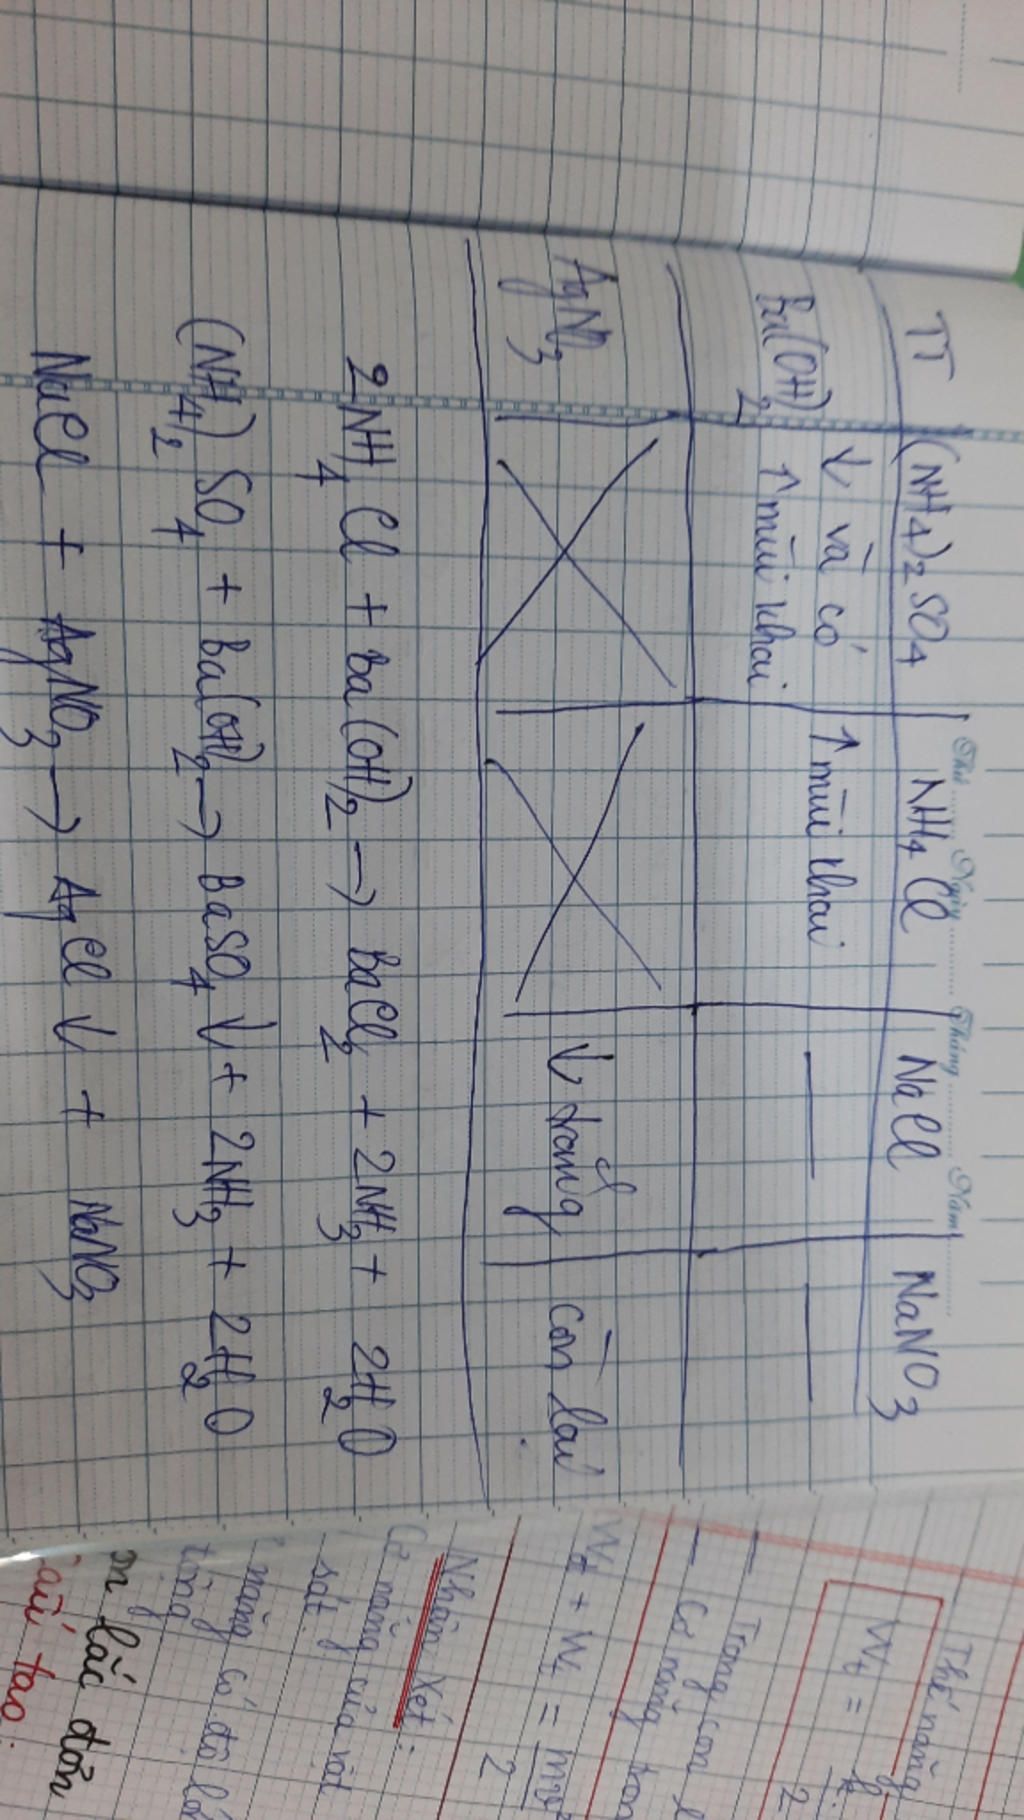 Thứ ........ Ngày ........ Tháng ........ Năm ........
TT (NH4)2SO4 NH4Cl NaCl NaNO3
Ba(OH)2 ↓ và có ↑ mùi khai — —
↑ mùi khai
AgNO3 ↓ trắng còn lại
2NH4Cl + Ba(OH)2 → BaCl2 + 2NH3 + 2H2O
(NH4)2SO4 + Ba(OH)2 → BaSO4 ↓ + 2NH3 + 2H2O
NaCl + AgNO3 → AgCl ↓ + NaNO3
Thế năng
Wt =
2
Trong con l
– Cơ năng
Wđ + Wt = mv²
2
Nhận xét:
Cơ năng của vật
sát.
năng có độ lớ
on lắc đơn
Cấu tạo: